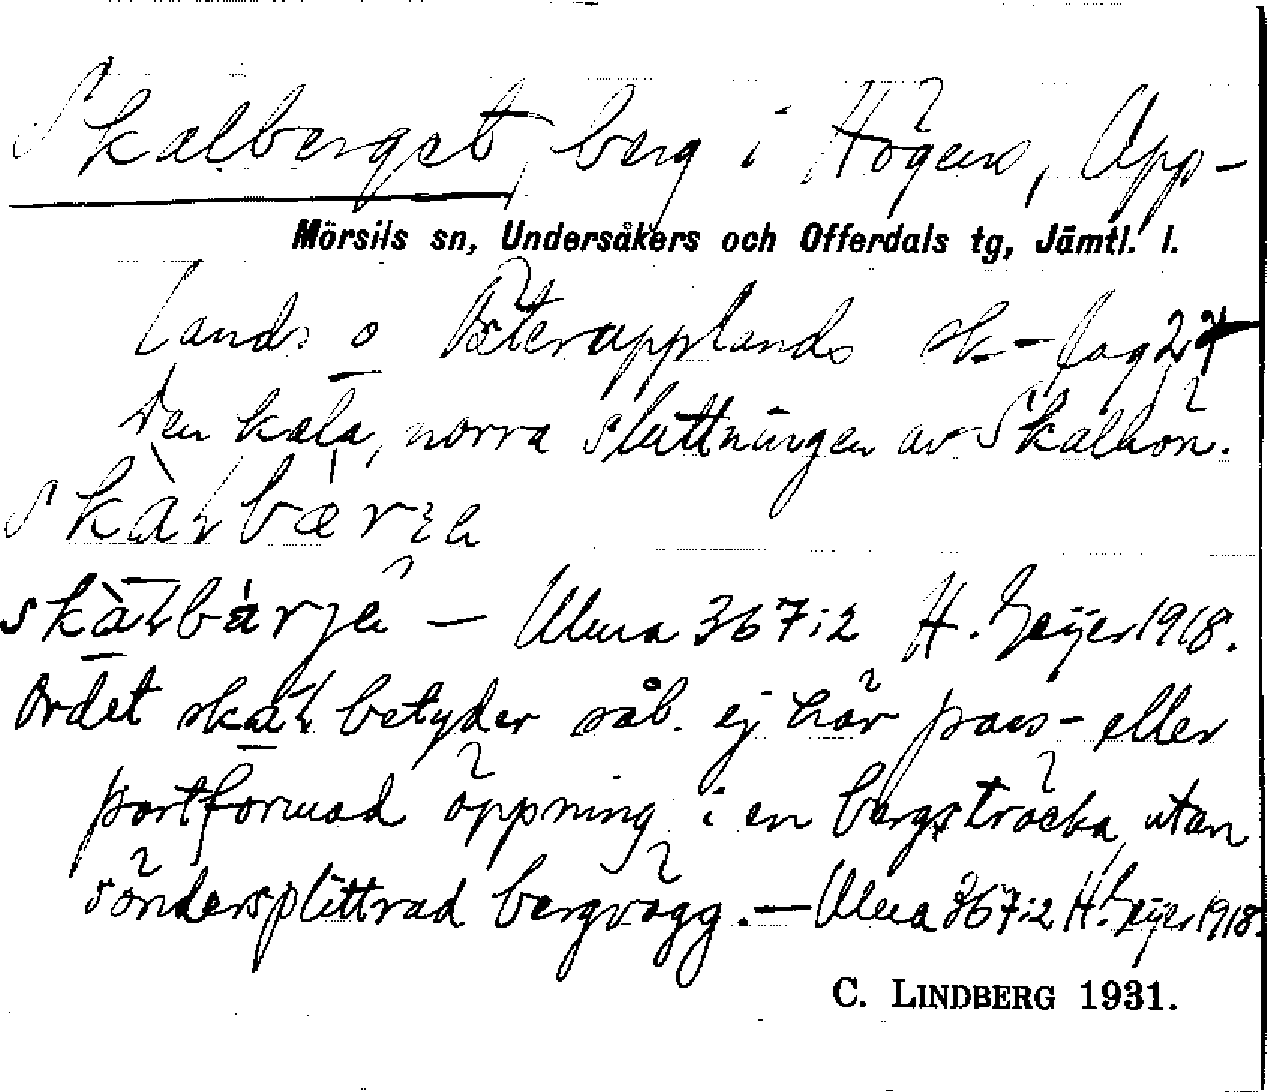 Skalberget, berg i Högens, Upp-
Mörsils sn, Undersåkers och Offerdals tg, Jämtl. l.
lands o Österupplands sk-lag 24
den kala, norra sluttningen av Skalhön.
skàłbærɜe
skàłbàrje — Ulma 367:2 H. Geijer 1918.
Ordet skał betyder såb. ej här pass- eller
portformad öppning i en bergsträcka utan
söndersplittrad bergvägg. — Ulma 367:2 H. Geijer 1918.
C. LINDBERG 1931.